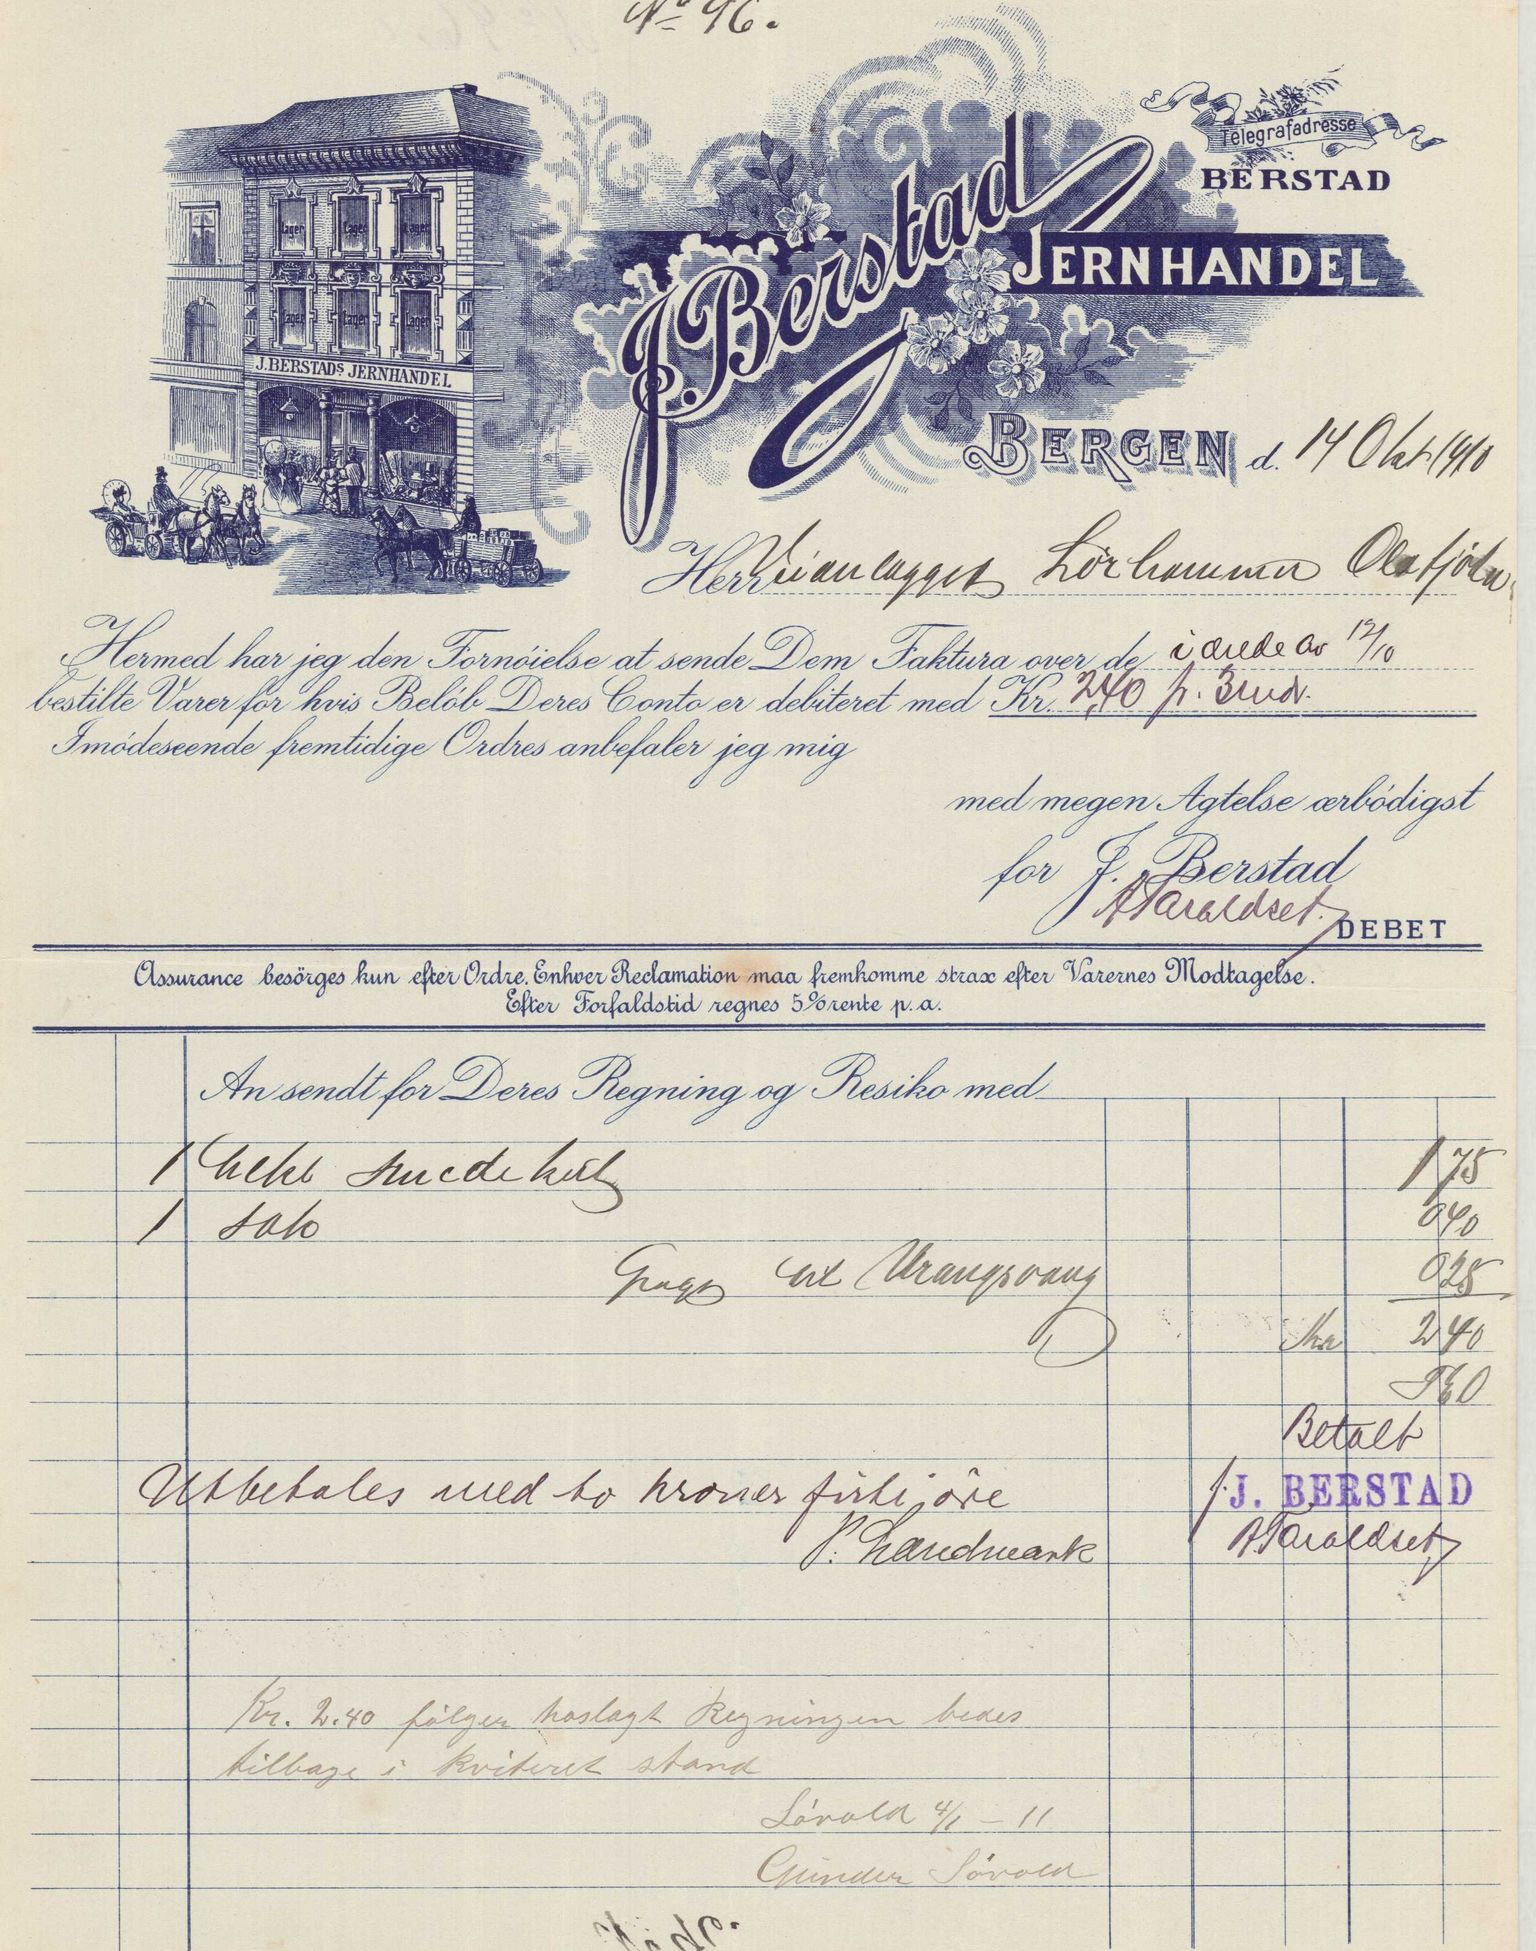 No 96.
Telegrafadresse
BERSTAD
J. Berstad
JERNHANDEL
Lager Lager Lager
Lager Lager Lager
J. BERSTADS JERNHANDEL
BERGEN d. 14 Okt 1910
Herr Veianlægget
Hermed har jeg den Fornöielse at sende Dem Faktura over de i ordre av 12/10
bestilte Varer for hvis Belöb Deres Conto er debiteret med Kr. 2,40 p. 3 md.
Imödeseende fremtidige Ordres anbefaler jeg mig
med megen Agtelse ærbödigst
for J. Berstad
A Taraldset
DEBET
Assurance besörges kun efter Ordre. Enhver Reclamation maa fremkomme strax efter Varernes Modtagelse.
Efter Forfaldstid regnes 5% rente p. a.
An sendt for Deres Regning og Resiko med
1 hekt smedekul 1 75
1 sæk 0 40
Fragt til Vrangsvaag 0 25
Kr 2 40
Betalt
f. J. BERSTAD
A Taraldset
Utbetales med to kroner förti öre
P. Landmark
Kr. 2.40 følger hoslagt Regningen bedes
tilbage i kviteret stand
Løvold 4/1 - 11
Gunder Løvold